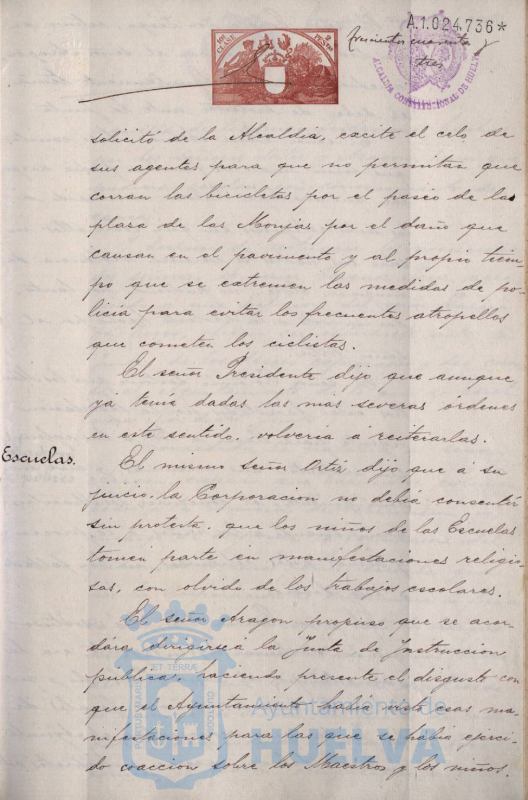 A.1.024.736*
Trescientos cuarenta y
tres
ALCALDIA CONSTITUCIONAL DE HUELVA
solicitó de la Alcaldia, excite el celo de
sus agentes para que no permitan que
corran las bicicletas por el paseo de la
plaza de las Monjas por el daño que
causan en el pavimento y al propio tiem-
po que se extremen las medidas de po-
licia para evitar los frecuentes atropellos
que cometen los ciclistas.
El señor Presidente dijo que aunque
yá tenia dadas las más severas órdenes
en este sentido, volveria á reiterarlas.
Escuelas.
El mismo señor Ortiz dijo que á su
juicio, la Corporacion no debia consentir
sin protesta, que los niños de las Escuelas
tomen parte en manifestaciones religio-
sas, con olvido de los trabajos escolares.
El señor Aragon propuso que se acor-
dára dirigirse á la Junta de Instruccion
publica, haciendo presente el disgusto con
que el Ayuntamiento habia visto esas ma-
nifestaciones para las que se habia ejerci-
do coaccion sobre los Maestros y los niños.
Ayuntamiento de
HUELVA